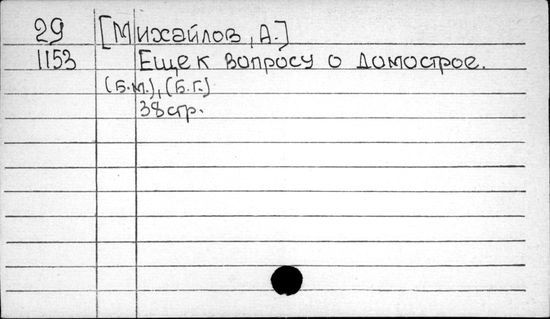 29 [Михайлов, А.]
1153 Еще к вопросу о Домострое.
(Б.м.), (Б.г.)
38 стр.